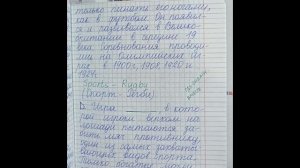 только пинать его ногами,
как в футболе. Он появил-
ся и развивался в Велико-
британии в середине 19
века. Соревнования проводи-
ли на Олимпийских Иг-
рах в 1900г, 1908, 1920 и
1924.
Sports - Rugby
(Спорт - Регби)
Игра в кото-
рой игроки верхом на
лошади пытаются за-
бить мяч противнику,
один из самых захваты-
вающих видов спорта,